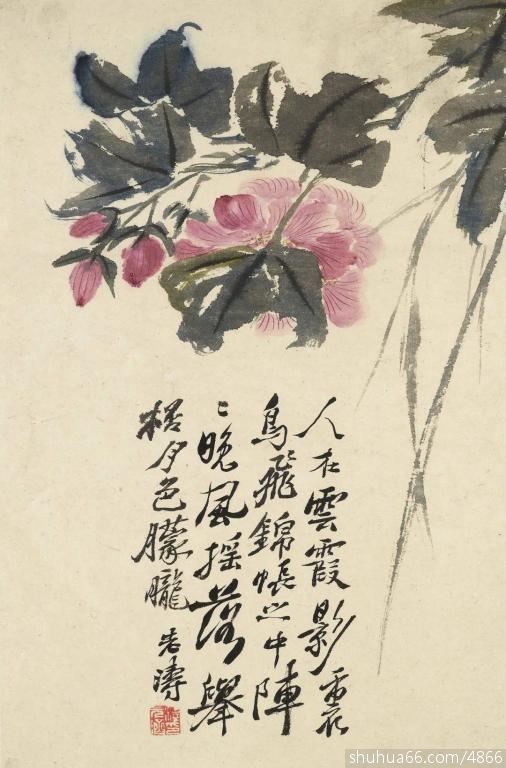 人在雲霞影裏
鳥飛錦帳之中陣
〻晚風搖落舉
杯夕色朦朧 老濤
shuhua66.com/4866